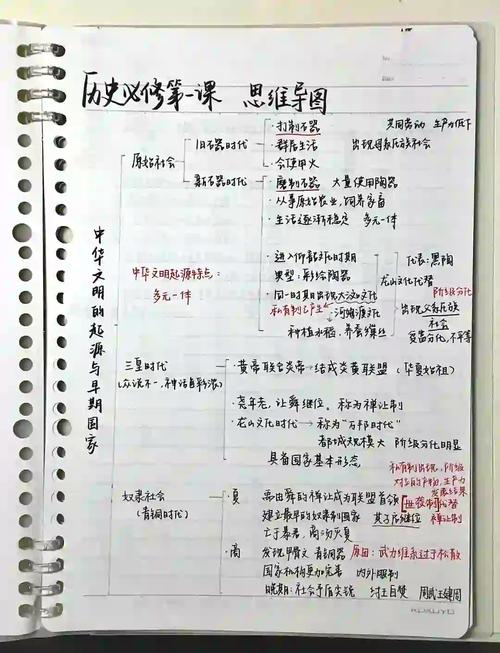 历史必修第一课 思维导图
中华文明的起源与早期国家
原始社会
旧石器时代
· 打制石器 共同劳动 生产力低下
· 群居生活 出现母系氏族社会
· 会使用火
新石器时代
· 磨制石器 大量使用陶器
· 从事原始农业,饲养家畜
· 生活逐渐稳定 多元一体
中华文明起源特点:
多元一体
· 进入仰韶文化时期
典型:彩绘陶器
· 同一时期出现大汶口文化
私有制已产生
河姆渡文化
种植水稻、养蚕缫丝
代表:黑陶
龙山文化代替
阶级分化
出现父系氏族
社会
贫富分化,不平等
三皇时代
(众说不一,神话色彩浓)
· 黄帝联合炎帝→结成炎黄联盟(华夏始祖)
· 尧年老,让舜继位。称为禅让制
· 龙山文化时代→称为"万邦时代"
都城规模大 阶级分化明显
具备国家基本形态
奴隶社会
(青铜时代)
私有制出现,阶级
对立的产物,生产力
发展结果
· 夏 禹由舜的禅让成为联盟首领 世袭制代替
建立最早的奴隶制国家 其子启继位 禅让制
亡于暴君,商汤灭夏
· 商 发现甲骨文 青铜器 原因:武力维系过于松散
国家机构更加完善 内外服制
晚期:社会矛盾尖锐 纣王自焚 周武王建周
KOKUYO